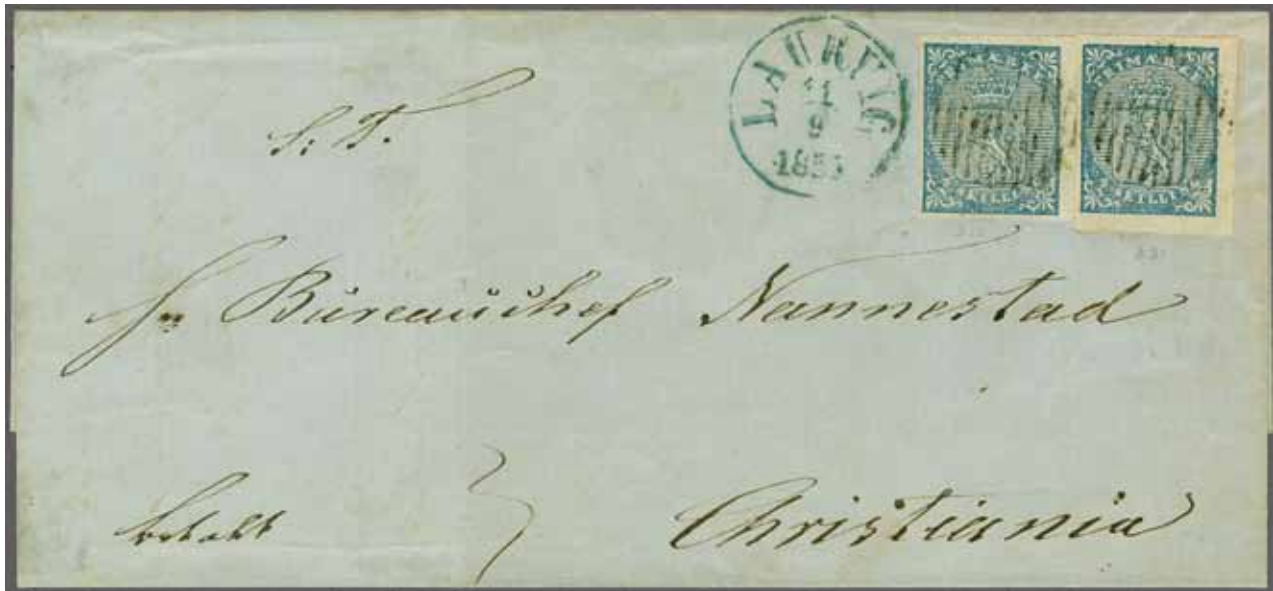 LAURVIG
11
9
1855
FRIMÆRKE FRIMÆRKE
S: T.
Hr Büreauchef Nannestad
betalt
Christiania